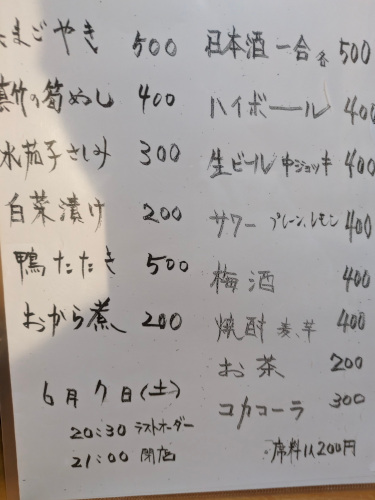 たまごやき 500
真竹の筍めし 400
水茄子さしみ 300
白菜漬け 200
鴨たたき 500
おから煮 200
6月7日(土)
20:30 ラストオーダー
21:00 閉店
日本酒 一合 各 500
ハイボール 400
生ビール 中ジョッキ 400
サワー プレーン、レモン 400
梅酒 400
焼酎 麦 芋 400
お茶 200
コカコーラ 300
・席料1人200円